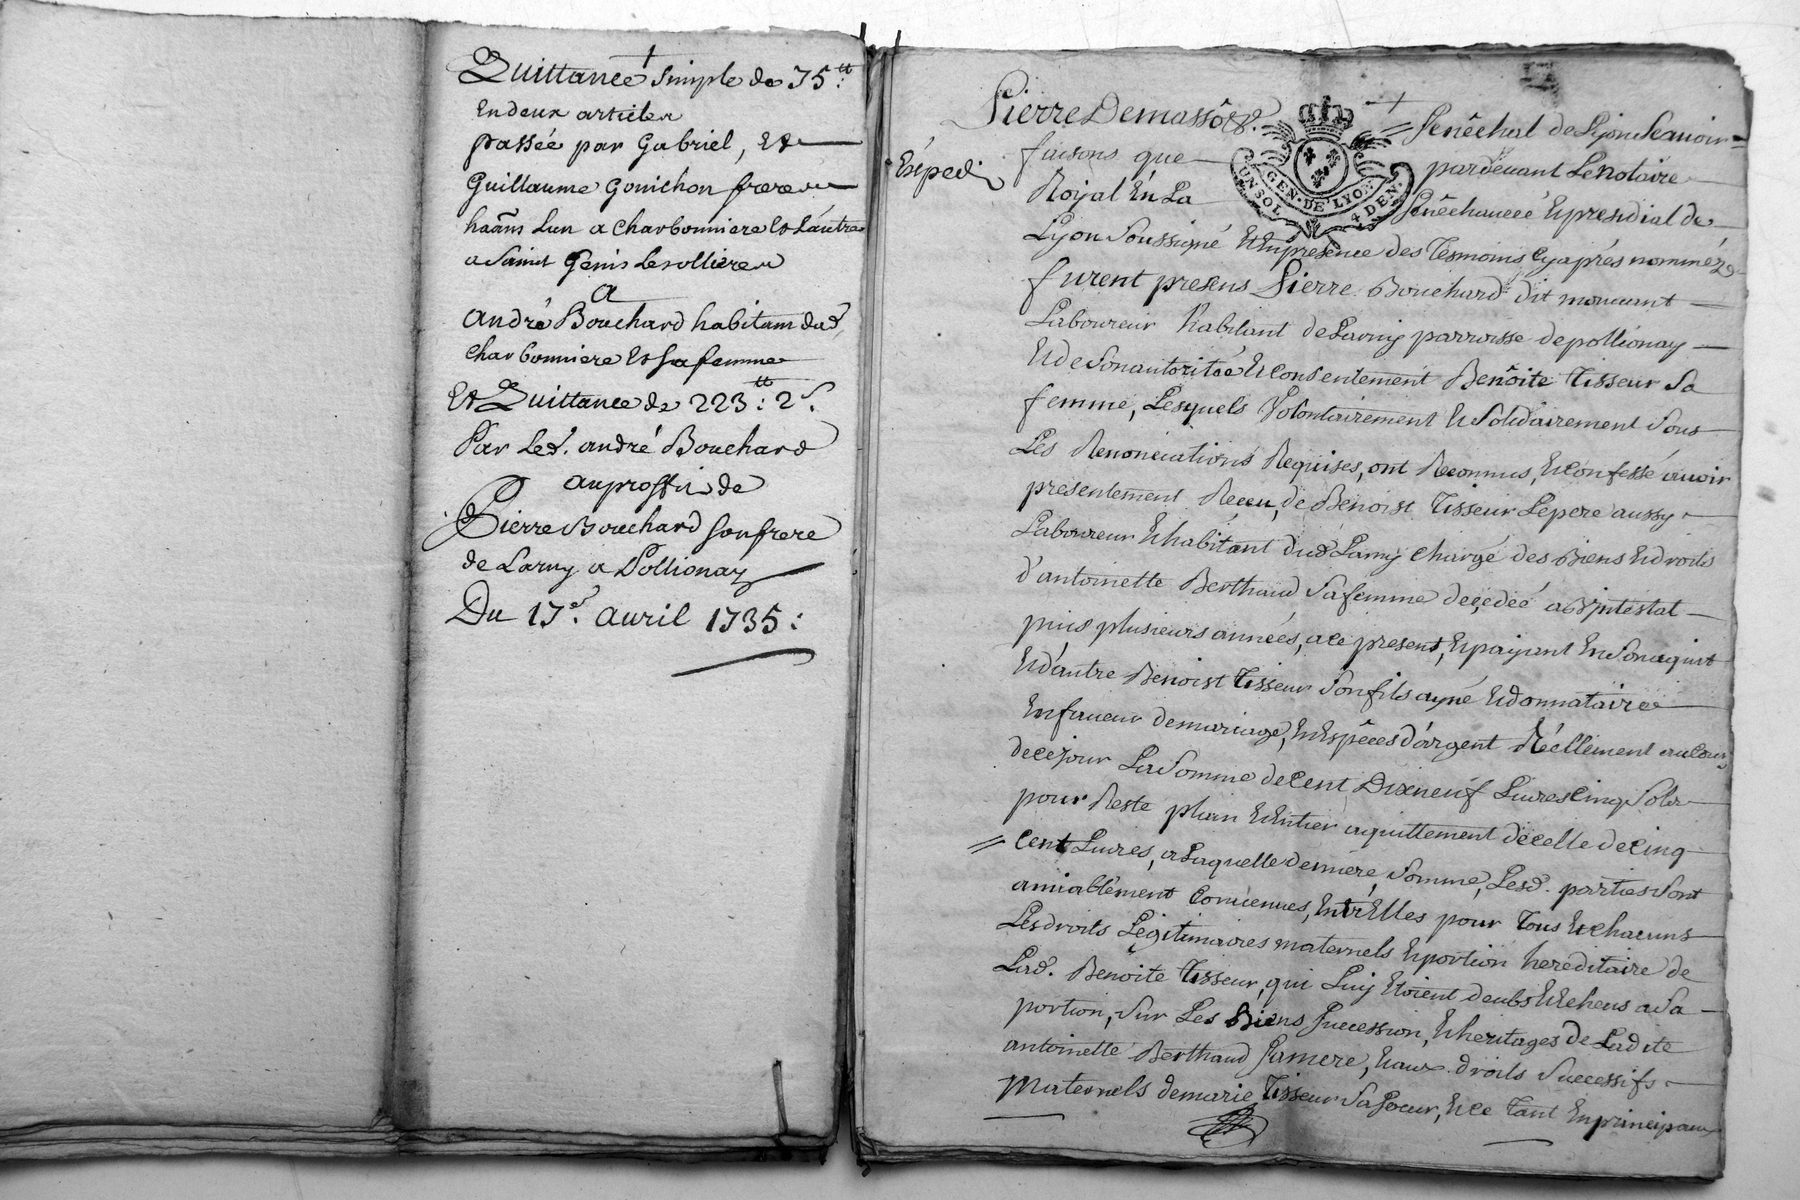 Quittance simple de 75tt:
En deux articles
passée par Gabriel, Et
Guillaume Gonichon freres
haãns Lun a Charbonniere Et L'autre
a Saint Genis Les ollieres
a
André Bouchard habitant dud.
Charbonniere Et sa femme
Et Quittance de 223tt: 2s.
Par Led. andré Bouchard
au proffit de
Pierre Bouchard son frere
de Larny a Pollionay
Du 17e. avril 1735:
Expedi
Pierre Demassô &c. Senêchal de Lyon Scavoir
faisons que pardevant Le Notaire
Royal En La Senêchaucée Et presidial de
UN SOL GEN. DE LYON 4 DEN.
Lyon Soussigné Et En presence des Tesmoins Cy après nomméz
furent presens Pierre Bouchard dit mouvant
Laboureur habitant de Larny parroisse de pollionay
Et de Son autoritée Et Consentement Benôite Tisseur Sa
femme, Lesquels Volontairement Et Solidairement Sous
Les Renonciations Requises, ont Reconnus, Et confessé avoir
presentement Receu, de Benoist Tisseur Le pere aussy
Laboureur Et habitant dud. Larny Chargé des Biens Et droits
d'antoinette Berthaud Sa femme deçedéé ab Intestat
puis plusieurs années, a ce present, Et payant En Son aquit
Et d'autre Benoist Tisseur Son fils ayné Et donnataire
En faveur de mariage, En Espêces d'argent Réellement au Cours
de ce jour La Somme de Cent Dixneuf Livres Cinq Sols
pour Reste plain Et Entier aquittement de celle de Cinq
Cent Livres, a Laquelle derniere Somme, Lesd. parties Sont
amiablement Convenues, Entr'Elles pour Tous Et chacuns
Les droits Légitimaires maternels Et portion hereditaire de
Lad. Benoite Tisseur, qui Luy Etoient deubs Et Echeus a Sa
portion, Sur Les Biens Succession, Et heritages de Ladite
antoinette Berthaud Sa mere, Et aux droits Successifs
Maternels de marie Tisseur Sa Soeur, Et ce Tant En principaux